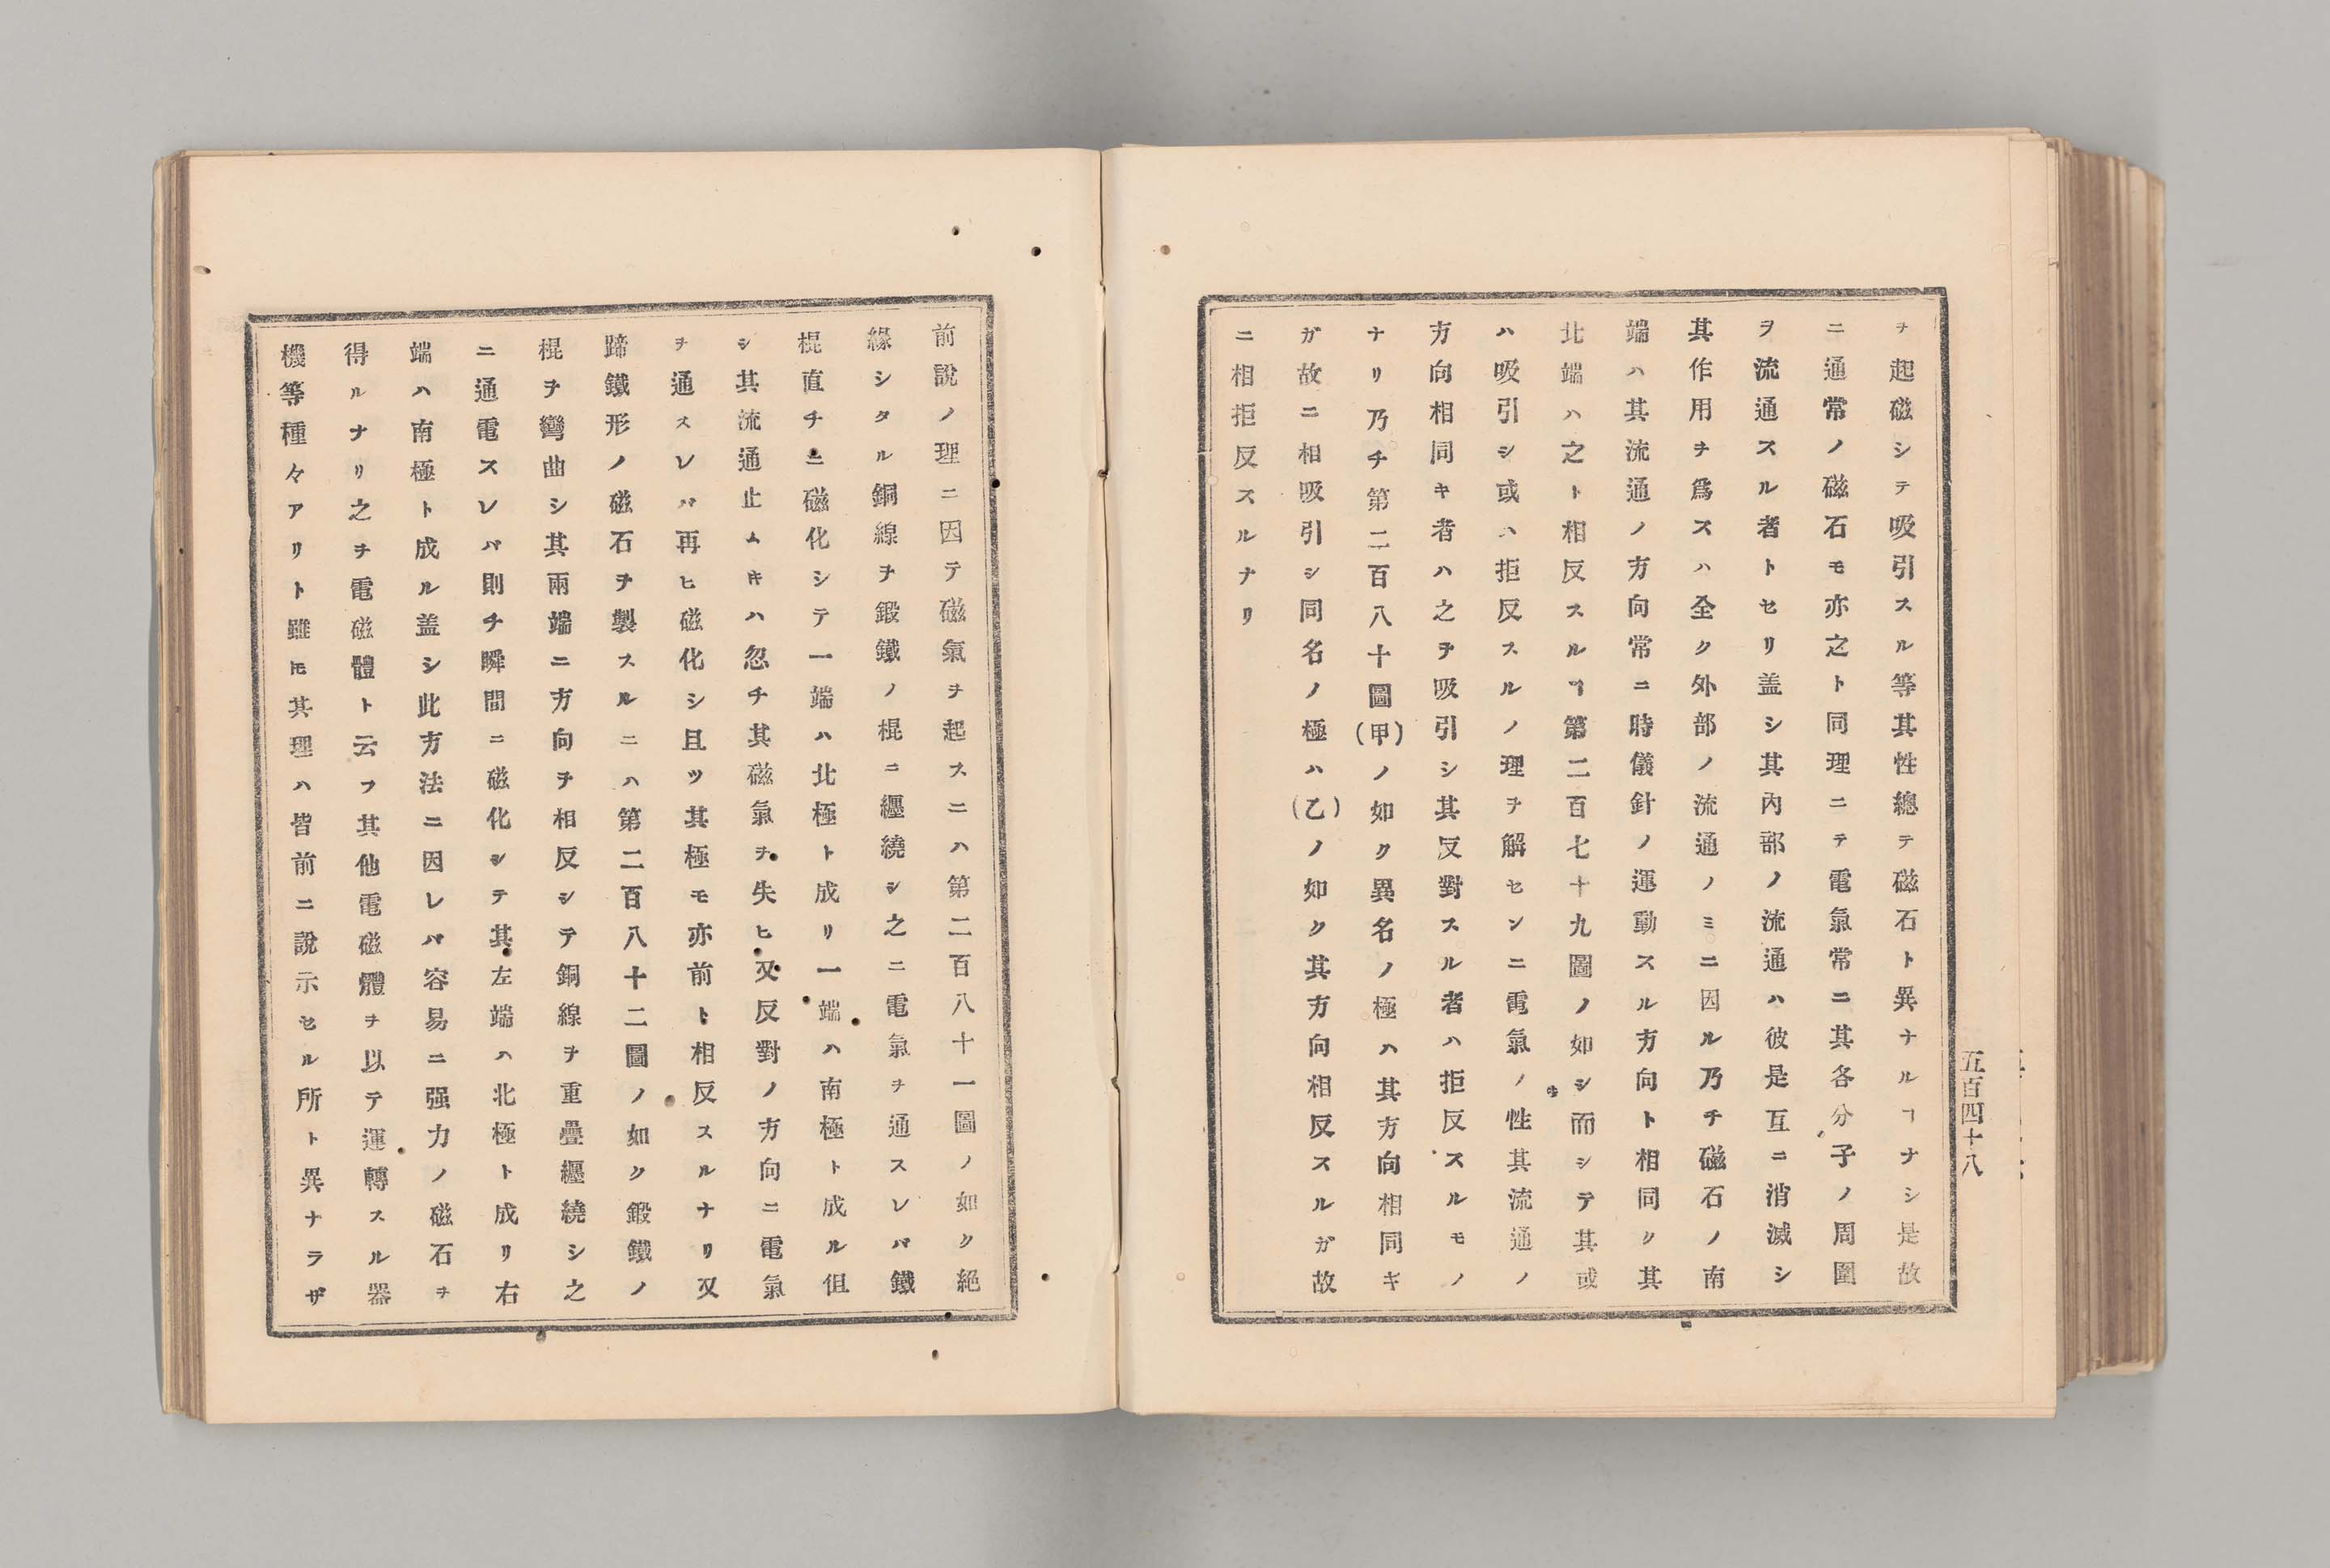 五百四十八
ヲ起磁シテ吸引スル等其性總テ磁石ト異ナルヿナシ是故
ニ通常ノ磁石モ亦之ト同理ニテ電氣常ニ其各分子ノ周圍
ヲ流通スル者トセリ盖シ其內部ノ流通ハ彼是互ニ消滅シ
其作用ヲ爲スハ全ク外部ノ流通ノミニ因ル乃チ磁石ノ南
端ハ其流通ノ方向常ニ時儀針ノ運動スル方向ト相同シ其
北端ハ之ト相反スルヿ第二百七十九圖ノ如シ而シテ其或
ハ吸引シ或ハ拒反スルノ理ヲ解センニ電氣ノ性其流通ノ
方向相同キ者ハ之ヲ吸引シ其反對スル者ハ拒反スルモノ
ナリ乃チ第二百八十圖(甲)ノ如ク異名ノ極ハ其方向相同キ
ガ故ニ相吸引シ同名ノ極ハ(乙)ノ如ク其方向相反スルガ故
ニ相拒反スルナリ
前說ノ理ニ因テ磁氣ヲ起スニハ第二百八十一圖ノ如ク絕
緣シタル銅線ヲ鍛鐵ノ棍ニ纒繞シ之ニ電氣ヲ通スレバ鐵
棍直チニ磁化シテ一端ハ北極ト成リ一端ハ南極ト成ル但
シ其流通止ムキハ忽チ其磁氣ヲ失ヒ又反對ノ方向ニ電氣
ヲ通スレバ再ヒ磁化シ且ツ其極モ亦前ト相反スルナリ又
蹄鐵形ノ磁石ヲ製スルニハ第二百八十二圖ノ如ク鍛鐵ノ
棍ヲ彎曲シ其兩端ニ方向ヲ相反シテ銅線ヲ重疊纒繞シ之
ニ通電スレバ則チ瞬間ニ磁化シテ其左端ハ北極ト成リ右
端ハ南極ト成ル盖シ此方法ニ因レバ容易ニ强力ノ磁石ヲ
得ルナリ之ヲ電磁體ト云フ其他電磁體ヲ以テ運轉スル器
機等種々アリト雖𪜈其理ハ皆前ニ說示セル所ト異ナラザ